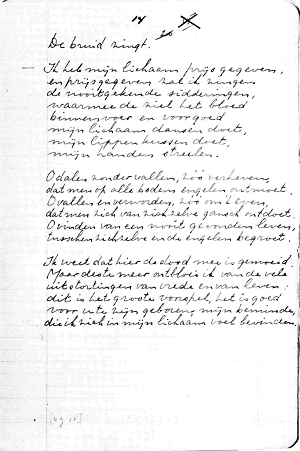 14
De bruid zingt.
Ik heb mijn lichaam prijs gegeven,
en prijsgegeven zal ik zingen
de nooitgekende sidderingen,
waarmee de ziel het bloed
binnenvoer en voorgoed
mijn lichaam dansen doet,
mijn lippen kussen doet,
mijn handen streelen.
O dalen zonder vallen, zóó verheven,
dat men op alle bodems engelen ontmoet.
O vallen en verworden, zóó om 't even,
dat men zich van zichzelve gansch ontdoet.
O vinden van een nooit gevonden leven,
zichzelve en de engelen begroet.
Ik weet dat hier de dood mee is gemoeid.
Maar deste meer ontbloei ik van de vele
uitstortingen van vrede en van leven:
dit is het groote voorspel, het is goed
voor u te zijn geboren, mijn beminde,
die ik zich in mijn lichaam voel bevinden.